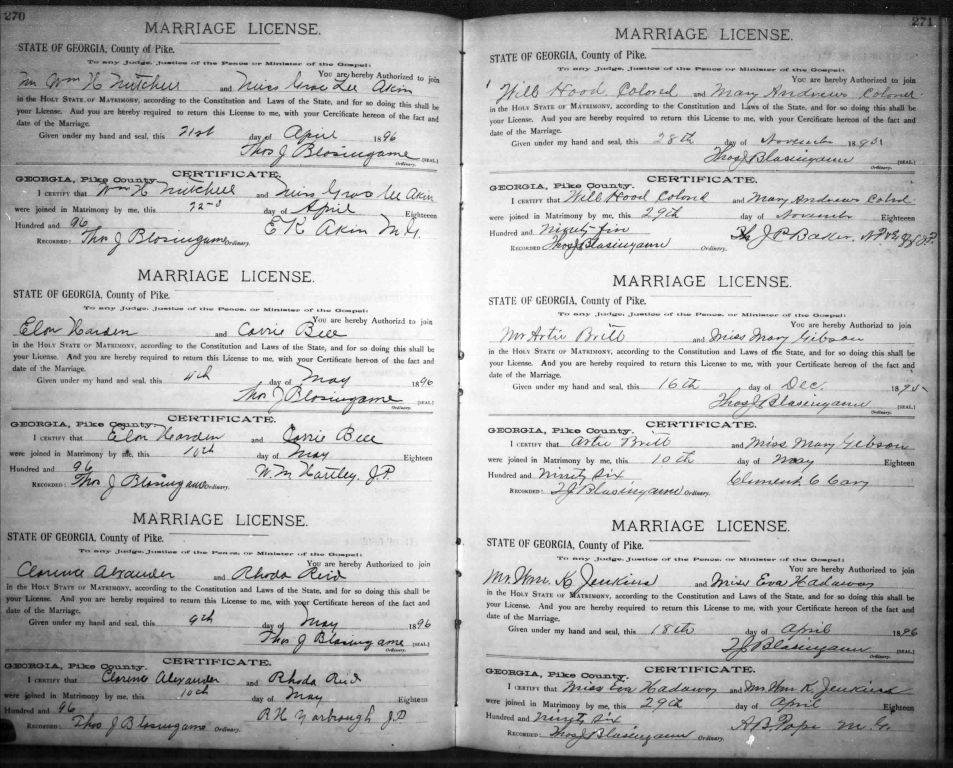 270
MARRIAGE LICENSE.
STATE OF GEORGIA, County of Pike.
To any Judge, Justice of the Peace or Minister of the Gospel:
You are hereby Authorized to join
Mr Wm H Mitchell and Miss Grac Lee Akin
in the HOLY STATE OF MATRIMONY, according to the Constitution and Laws of the State, and for so doing this shall be
your License. And you are hereby required to return this License to me, with your Certificate hereon of the fact and
date of the Marriage.
Given under my hand and seal, this 21st day of April 1896
Thos J Blasingame (SEAL)
Ordinary.
CERTIFICATE.
GEORGIA, Pike County.
I CERTIFY that Wm H Mitchell and Miss Grac Lee Akin
were joined in Matrimony by me, this 22nd day of April Eighteen
Hundred and 96 E K Akin M.G.
RECORDED: Thos J Blasingame Ordinary.
MARRIAGE LICENSE.
STATE OF GEORGIA, County of Pike.
To any Judge, Justice of the Peace or Minister of the Gospel:
You are hereby Authorized to join
Elon Harden and Carrie Bell
in the HOLY STATE OF MATRIMONY, according to the Constitution and Laws of the State, and for so doing this shall be
your License. And you are hereby required to return this License to me, with your Certificate hereon of the fact and
date of the Marriage.
Given under my hand and seal, this 4th day of May 1896
Thos J Blasingame (SEAL)
Ordinary.
CERTIFICATE.
GEORGIA, Pike County.
I CERTIFY that Elon Harden and Carrie Bell
were joined in Matrimony by me, this 10th day of May Eighteen
Hundred and 96 W. M. Hartley, J.P.
RECORDED: Thos J Blasingame Ordinary.
MARRIAGE LICENSE.
STATE OF GEORGIA, County of Pike.
To any Judge, Justice of the Peace, or Minister of the Gospel:
You are hereby Authorized to join
Clarence Alexander and Rhoda Reid
in the HOLY STATE OF MATRIMONY, according to the Constitution and Laws of the State, and for so doing this shall be
your License. And you are hereby required to return this License to me, with your Certificate hereon of the fact and
date of the Marriage.
Given under my hand and seal, this 9th day of May 1896
Thos J Blasingame (SEAL)
Ordinary.
CERTIFICATE.
GEORGIA, Pike County.
I CERTIFY that Clarence Alexander and Rhoda Reid
were joined in Matrimony by me, this 10th day of May Eighteen
Hundred and 96 R H Yarbrough J.P.
RECORDED: Thos J Blasingame Ordinary.
271
MARRIAGE LICENSE.
STATE OF GEORGIA, County of Pike.
To any Judge, Justice of the Peace or Minister of the Gospel:
You are hereby Authorized to join
Will Hood Colored and Mary Andrews Colored
in the HOLY STATE OF MATRIMONY, according to the Constitution and Laws of the State, and for so doing this shall be
your License. And you are hereby required to return this License to me, with your Certificate hereon of the fact and
date of the Marriage.
Given under my hand and seal, this 28th day of November 1895
Thos J Blasingame (SEAL)
Ordinary.
CERTIFICATE.
GEORGIA, Pike County.
I CERTIFY that Will Hood Colord and Mary Andrews Colrd
were joined in Matrimony by me, this 29th day of November Eighteen
Hundred and ninety-five J P Baker,
RECORDED Thos J Blasingame Ordinary.
MARRIAGE LICENSE.
STATE OF GEORGIA, County of Pike.
To any Judge, Justice of the Peace, or Minister of the Gospel:
You are hereby Authorized to join
Mr Artie Britt and Miss Mary Gibson
in the HOLY STATE OF MATRIMONY, according to the Constitution and Laws of the State, and for so doing this shall be
your License. And you are hereby required to return this License to me, with your Certificate hereon of the fact and
date of the Marriage.
Given under my hand and seal, this 16th day of Dec. 1895
Thos J Blasingame (SEAL)
Ordinary.
CERTIFICATE.
GEORGIA, Pike County.
I CERTIFY that Artie Britt and Miss Mary Gibson
were joined in Matrimony by me, this 10th day of May Eighteen
Hundred and Ninety Six Clement C Cary
RECORDED: T J Blasingame Ordinary.
MARRIAGE LICENSE.
STATE OF GEORGIA, County of Pike.
To any Judge, Justice of the Peace, or Minister of the Gospel:
You are hereby Authorized to join
Mr. Wm. K. Jenkins and Miss Eva Hadaway
in the HOLY STATE OF MATRIMONY, according to the Constitution and Laws of the State, and for so doing this shall be
your License. And you are hereby required to return this License to me, with your Certificate hereon of the fact and
date of the Marriage.
Given under my hand and seal, this 18th day of April 1896
T J Blasingame (SEAL)
Ordinary.
CERTIFICATE.
GEORGIA, Pike County.
I CERTIFY that Miss Eva Hadaway and Mr Wm K. Jenkins
were joined in Matrimony by me, this 29th day of April Eighteen
Hundred and Ninety Six A. B. Pope M.G.
RECORDED: Thos J Blasingame Ordinary.